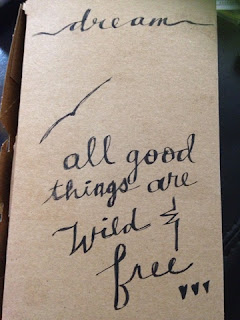 dream
all good
things are
Wild &
free